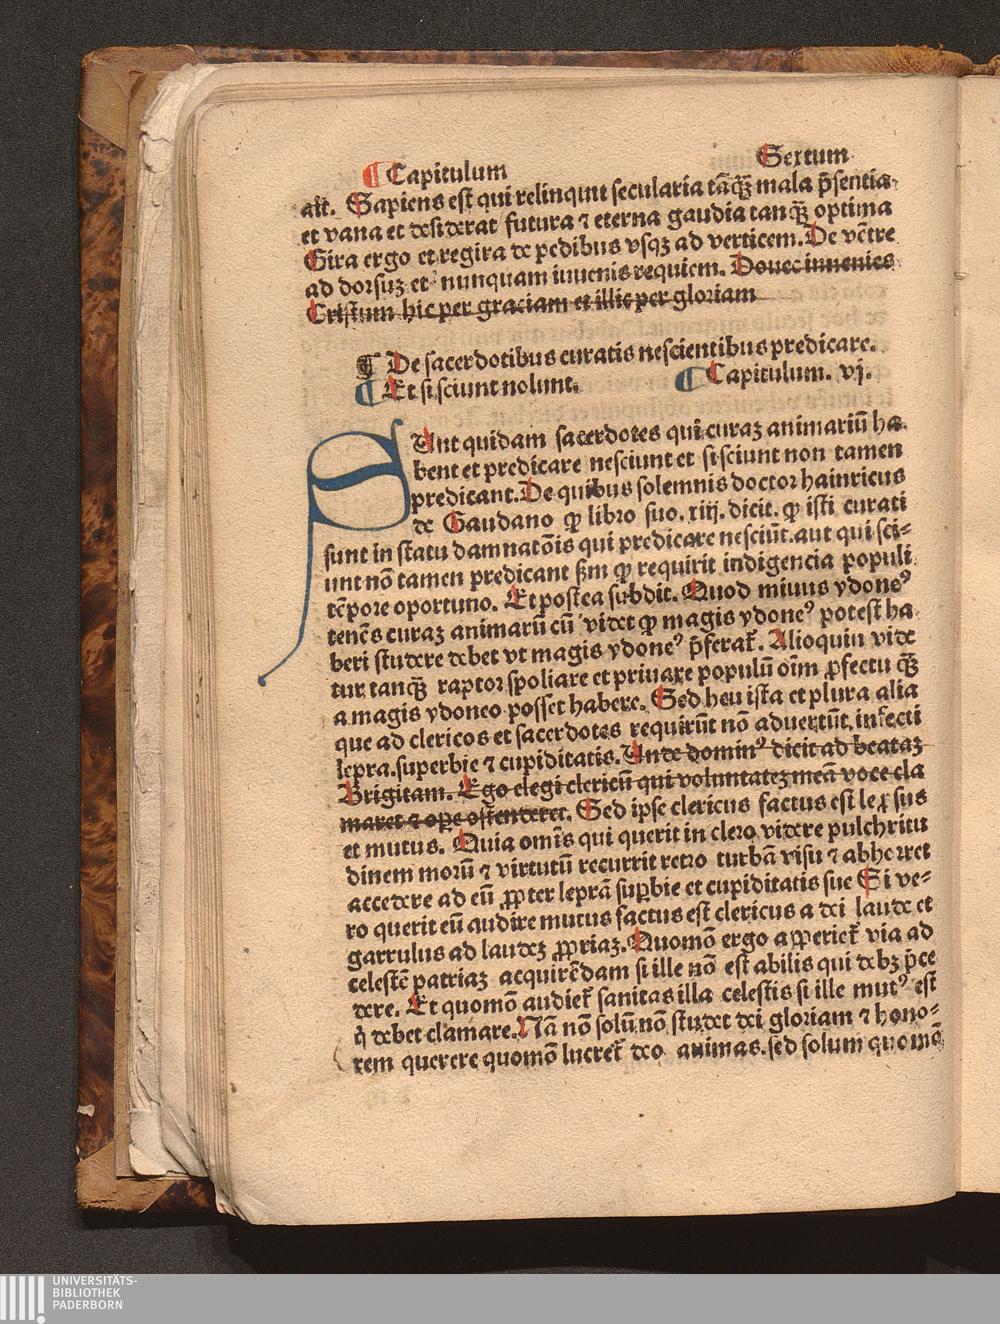 ¶ Capitulum Sextum
ait. Sapiens est qui relinqunt secularia tāꝗ̄ mala p̄sentia.
et vana et desiderat / futura ⁊ eterna gaudia tanꝗ̄ optima
Gira ergo et regira de pedibus vsqꝫ ad verticem. De vētre
ad dorsuꝫ et nunquam inuenis requiem. Donec inuenies
Cristum hic per graciam et illic per gloriam
¶ De sacerdotibus curatis nescientibus predicare.
¶ Et si sciunt nolunt. ¶ Capitulum. vj.
SUnt quidam sacerdotes qui curaꝫ animariū ha
bent et predicare nesciunt et si sciunt non tamen
predicant. De quibus solemnis doctor hainricus
de Gaudano ꝙ libro suo. xiij. dicit. ꝙ isti curati
sunt in statu damnatōis qui predicare nesciūt. aut qui sci-
unt nō tamen predicant ẜm ꝙ requirit indigencia populi
tēpore oportuno. Et postea subdit. Quod minus ydoneꝰ
tenēs curaꝫ animarū cū videt ꝙ magis ydoneꝰ potest ha
beri studere debet vt magis ydoneꝰ p̄ferat᷑. Alioquin vide
tur tanꝗ̄ raptor spoliare et priuare populū oīm ꝓfectu ꝗ̄
a magis ydoneo posset habere. Sed heu ista et plura alia
que ad clericos et sacerdotes requirūt nō aduertūt. infecti
lepra. superbie ⁊ cupiditatis. Unde dominꝰ dicit ad beataꝫ
Brigitam. Ego elegi clericū qui voluntateꝫ meā voce cla
maret ⁊ oꝑe ostenderet. Sed ipse clericus factus est leꝓsus
et mutus. Quia omīs qui querit in clero videre pulchritu
dinem morū ⁊ virtutū recurrit retro turbā visu ⁊ abhorret
accedere ad eū ꝓpter leprā suꝑbie et cupiditatis sue Si ve-
ro querit eū audire mutus factus est clericus a dei laude et
garrulus ad laudeꝫ ꝓpriaꝫ. Quomō ergo aꝑeriet᷑ via ad
celestē patriaꝫ acquirēdam si ille nō est abilis qui debꝫ p̄ce
dere. Et quomō audiet᷑ sanitas illa celestis si ille mutꝰ est
ꝗ̇ debet clamare. Nā nō solū nō studet dei gloriam ⁊ hono-
rem querere quomō lucret᷑ deo animas. sed solum quomō
UNIVERSITÄTS-
BIBLIOTHEK
PADERBORN